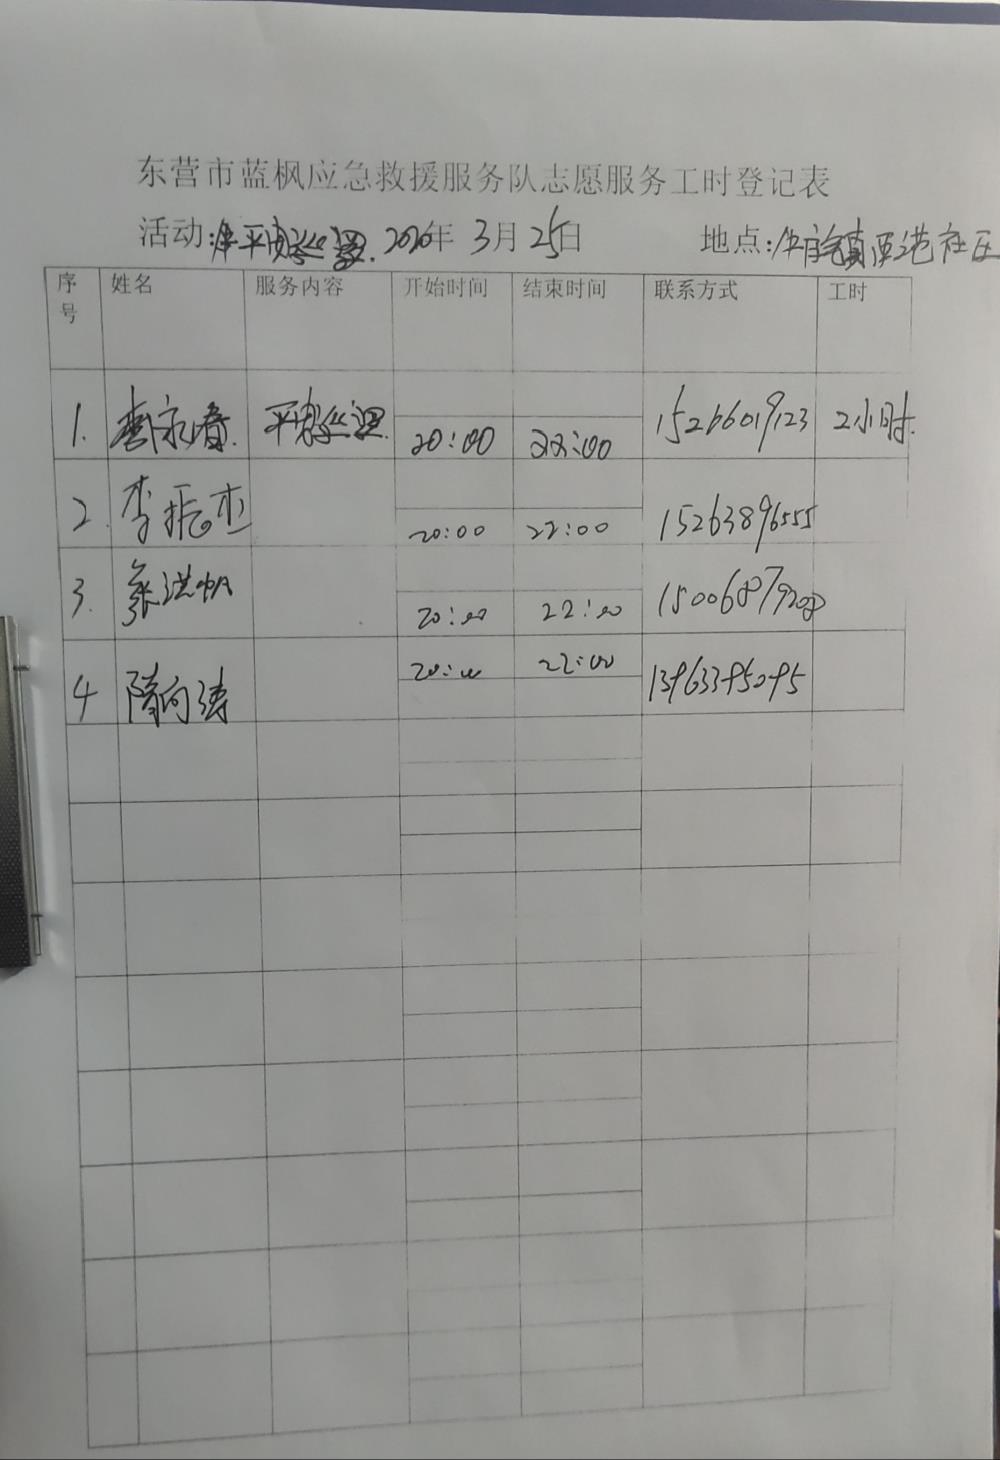 东营市蓝枫应急救援服务队志愿服务工时登记表
活动: 2020年 3月25日 地点: 社区
序号 姓名 服务内容 开始时间 结束时间 联系方式 工时
1. 李永春. 20:00 22:00 15266019123 2小时.
2. 李振杰 20:00 22:00 15263896555
3. 张洪帆 20:00 22:00
4 隋向涛 20:00 22:00 13963395295